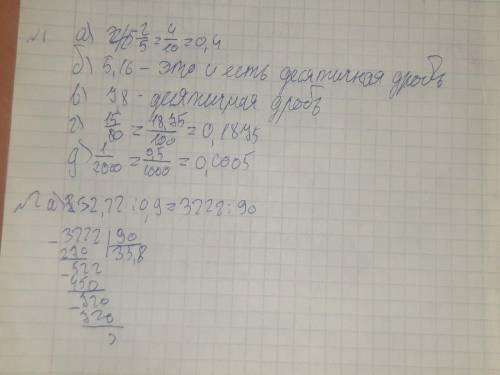 а) 2/5 = 4/10 = 0,4
б) 5,16 - это и есть десятичная дробь
в) 7,8 - десятичная дробь
г) 15/80 = 18,75/100 = 0,1875
д) 1/2000 = 0,5/1000 = 0,0005
а) 52,22 : 0,9 = 3222 : 90
- 3222 | 90
35,8
- 522
450